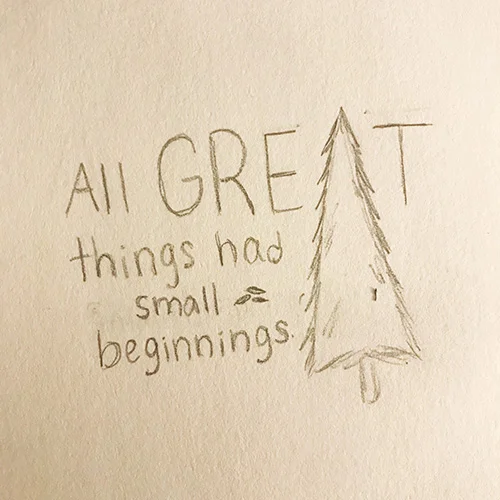 All GREAT
things had
small
beginnings.